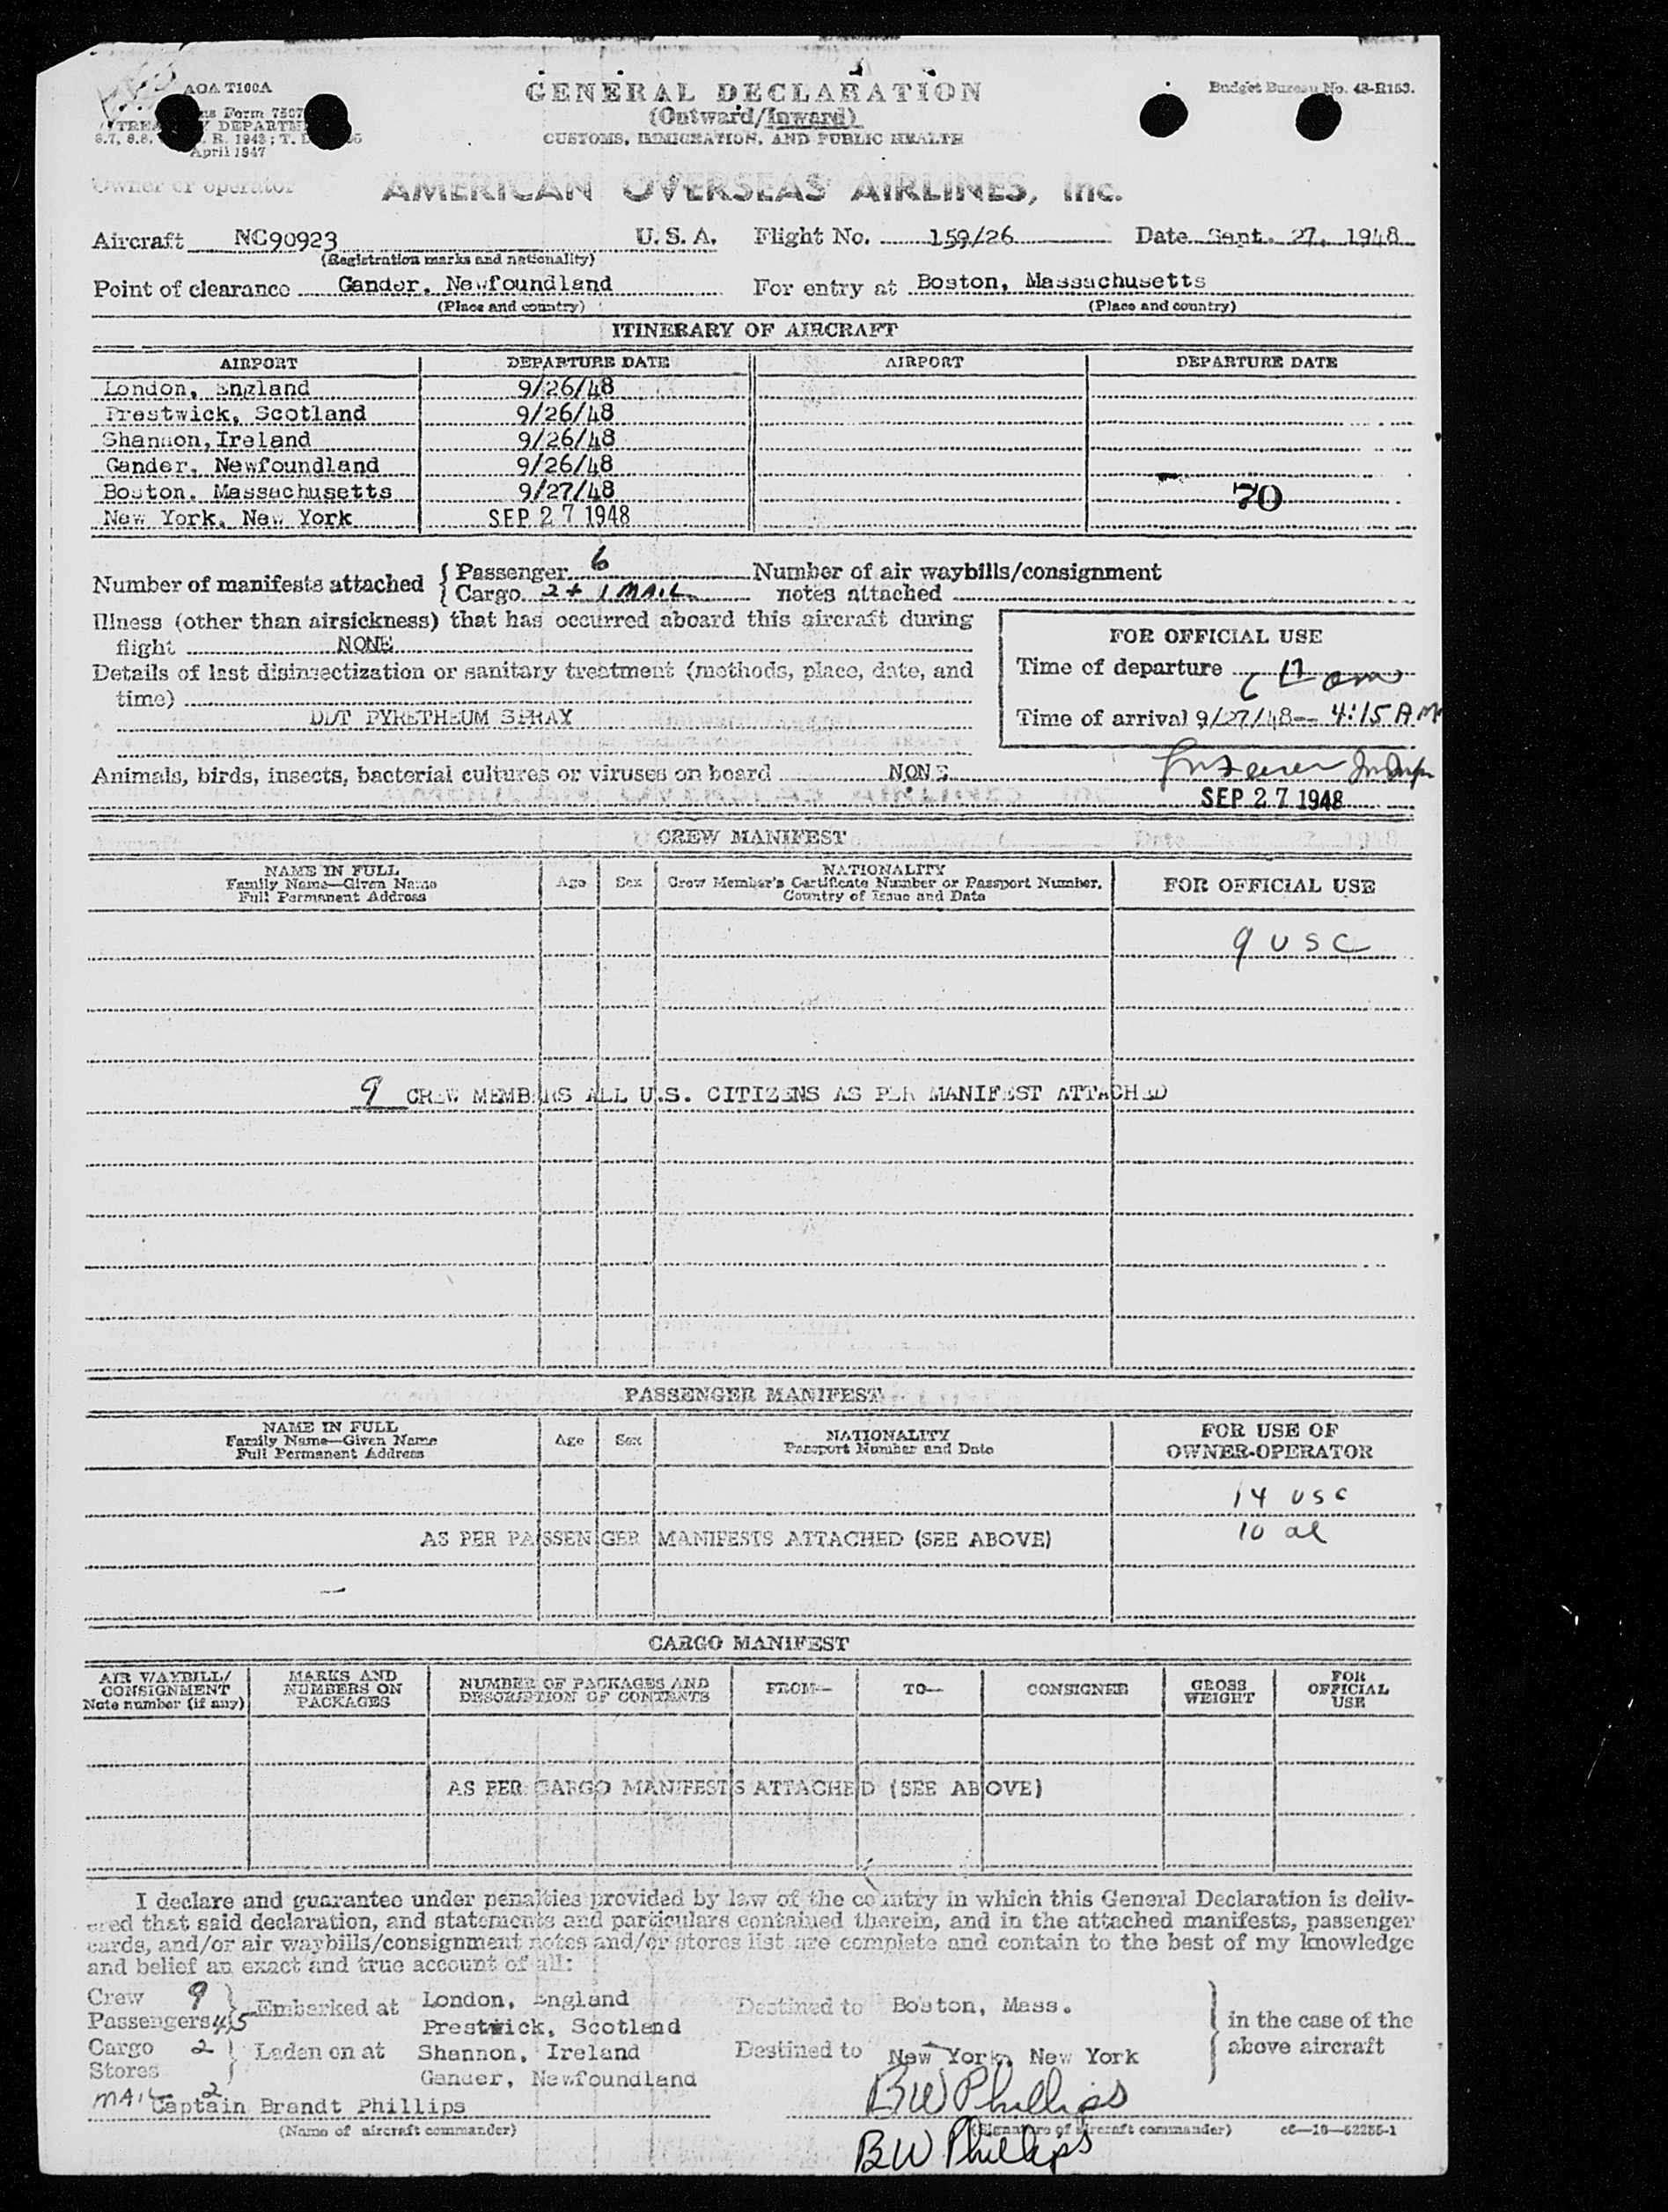 AOA T100A
Form 7507
TREASURY DEPARTMENT
April 1947
GENERAL DECLARATION
(Outward/Inward)
CUSTOMS, IMMIGRATION, AND PUBLIC HEALTH
Budget Bureau No. 48-R153.
Owner or operator AMERICAN OVERSEAS AIRLINES, Inc.
Aircraft NC90923 U. S. A. Flight No. 159/26 Date Sept. 27, 1948
(Registration marks and nationality)
Point of clearance Gander, Newfoundland For entry at Boston, Massachusetts
(Place and country) (Place and country)
ITINERARY OF AIRCRAFT
AIRPORT DEPARTURE DATE AIRPORT DEPARTURE DATE
London, England 9/26/48
Prestwick, Scotland 9/26/48
Shannon, Ireland 9/26/48
Gander, Newfoundland 9/26/48
Boston, Massachusetts 9/27/48 70
New York, New York SEP 27 1948
Number of manifests attached { Passenger 6 Number of air waybills/consignment
Cargo 2 + 1 MAIL notes attached
Illness (other than airsickness) that has occurred aboard this aircraft during
flight NONE
Details of last disinsectization or sanitary treatment (methods, place, date, and
time)
DDT PYRETHEUM SPRAY
FOR OFFICIAL USE
Time of departure
Time of arrival 9/27/48-- 4:15 AM
Animals, birds, insects, bacterial cultures or viruses on board NONE
SEP 27 1948
CREW MANIFEST
NAME IN FULL
Family Name—Given Name
Full Permanent Address
Age Sex
NATIONALITY
Crew Member's Certificate Number or Passport Number,
Country of Issue and Date
FOR OFFICIAL USE
9 USC
9 CREW MEMBERS ALL U.S. CITIZENS AS PER MANIFEST ATTACHED
PASSENGER MANIFEST
NAME IN FULL
Family Name—Given Name
Full Permanent Address
Age Sex
NATIONALITY
Passport Number and Date
FOR USE OF
OWNER-OPERATOR
14 USC
10 al
AS PER PASSENGER MANIFESTS ATTACHED (SEE ABOVE)
CARGO MANIFEST
AIR WAYBILL/
CONSIGNMENT
Note number (if any)
MARKS AND
NUMBERS ON
PACKAGES
NUMBER OF PACKAGES AND
DESCRIPTION OF CONTENTS
FROM— TO— CONSIGNEE
GROSS
WEIGHT
FOR
OFFICIAL
USE
AS PER CARGO MANIFESTS ATTACHED (SEE ABOVE)
I declare and guarantee under penalties provided by law of the country in which this General Declaration is deliv-
ered that said declaration, and statements and particulars contained therein, and in the attached manifests, passenger
cards, and/or air waybills/consignment notes and/or stores list are complete and contain to the best of my knowledge
and belief an exact and true account of all:
Crew 9 } Embarked at London, England Destined to Boston, Mass.
Passengers 45 Prestwick, Scotland
Cargo 2 } Laden on at Shannon, Ireland Destined to New York, New York
Stores Gander, Newfoundland
} in the case of the
above aircraft
MAIL 2
Captain Brandt Phillips BW Phillips
(Name of aircraft commander) (Signature of aircraft commander) c6—16—52255-1
BW Phillips